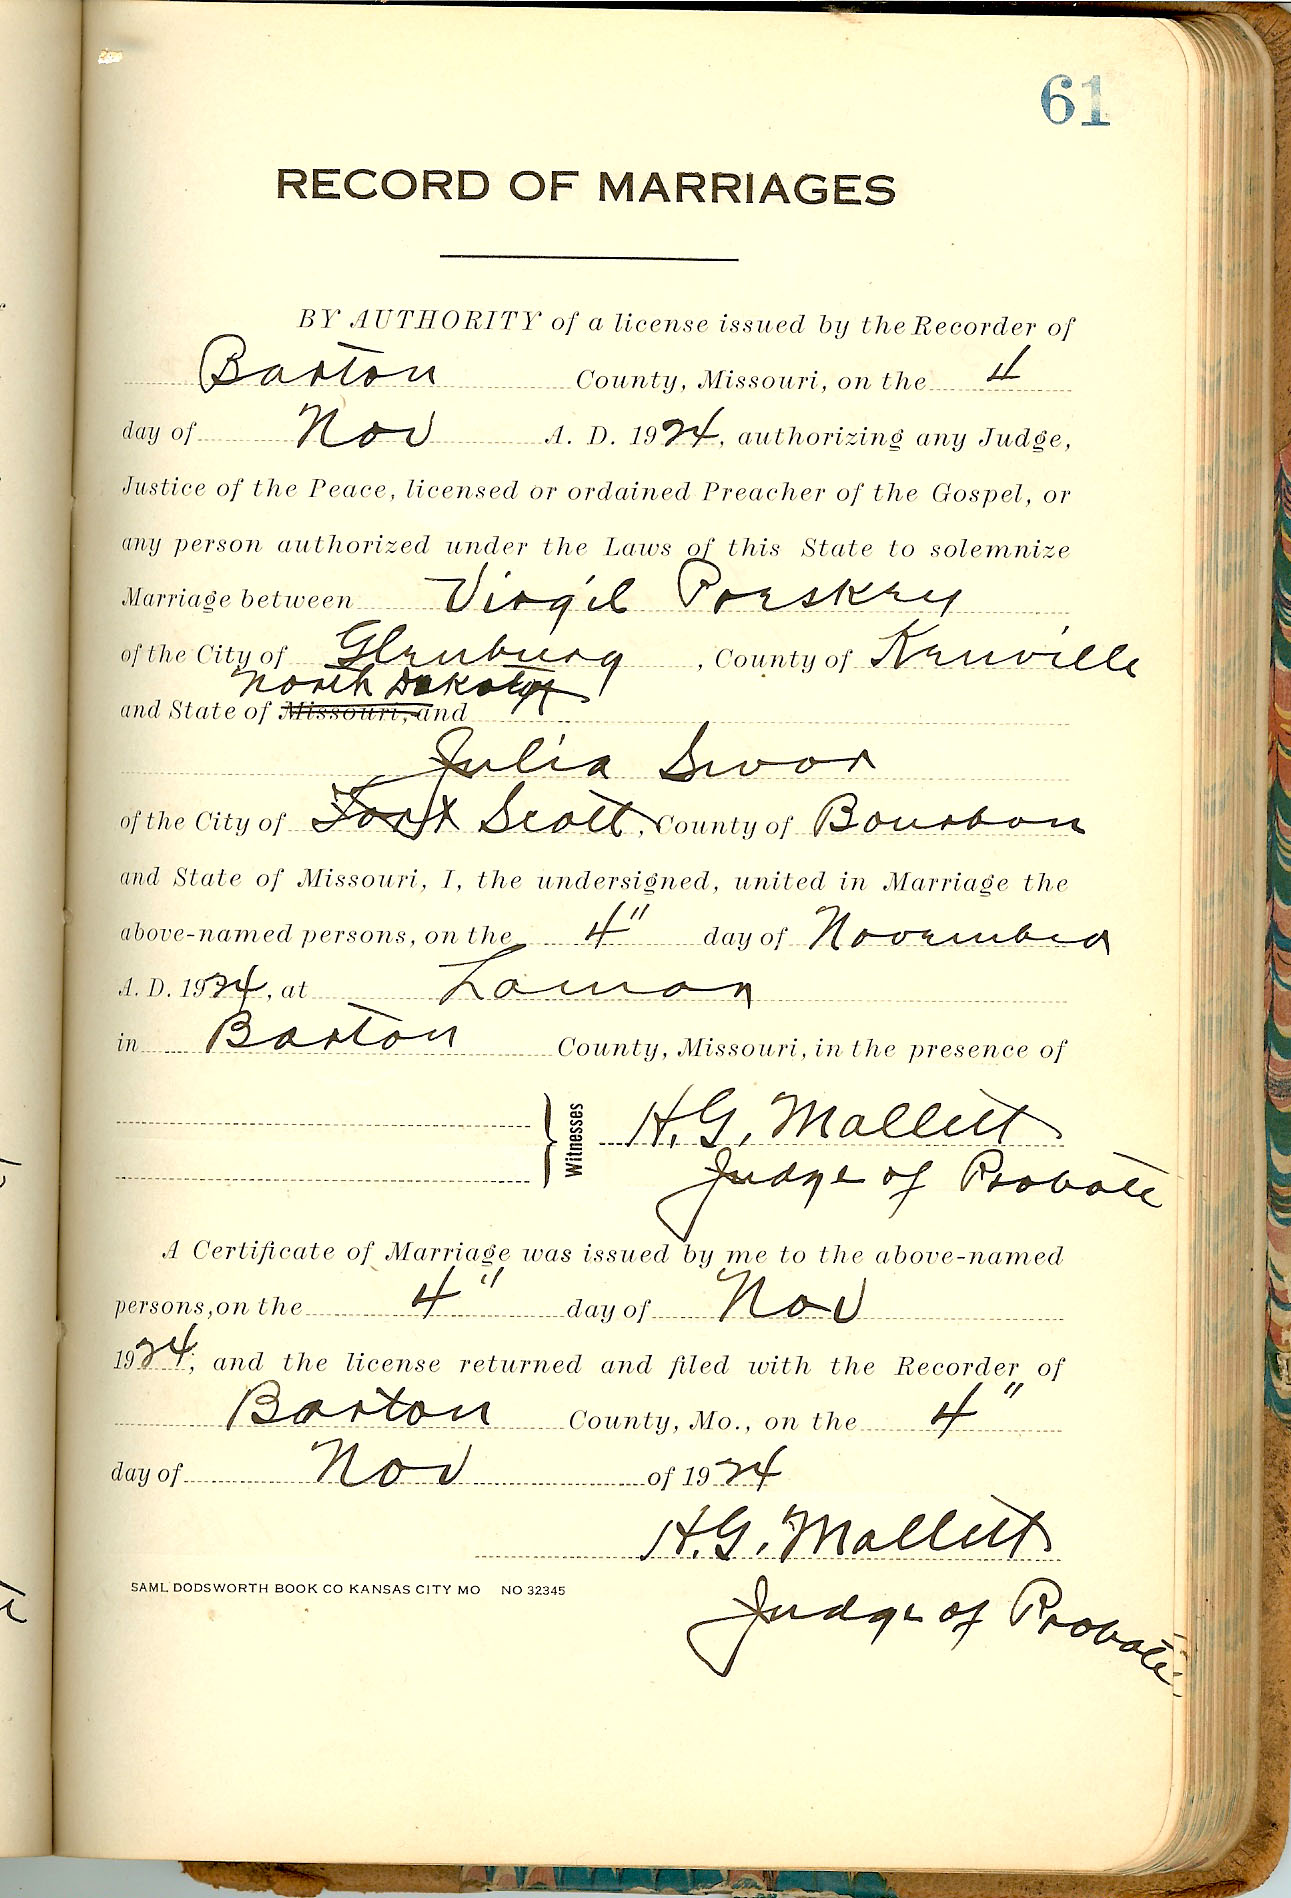 61
RECORD OF MARRIAGES
BY AUTHORITY of a license issued by the Recorder of
Barton County, Missouri, on the 4
day of Nov A. D. 1924, authorizing any Judge,
Justice of the Peace, licensed or ordained Preacher of the Gospel, or
any person authorized under the Laws of this State to solemnize
Marriage between Virgil
of the City of Glenburg, County of Renville
North Dakota
and State of Missouri, and
Julia Swor
of the City of Fort Scott, County of Bourbon
and State of Missouri, I, the undersigned, united in Marriage the
above-named persons, on the 4" day of November
A. D. 1924, at Lamar
in Barton County, Missouri, in the presence of
Witnesses H. G. Mallett
Judge of Probate
A Certificate of Marriage was issued by me to the above-named
persons, on the 4" day of Nov
1924, and the license returned and filed with the Recorder of
Barton County, Mo., on the 4"
day of Nov of 1924
H. G. Mallett
SAML DODSWORTH BOOK CO KANSAS CITY MO NO 32345
Judge of Probate